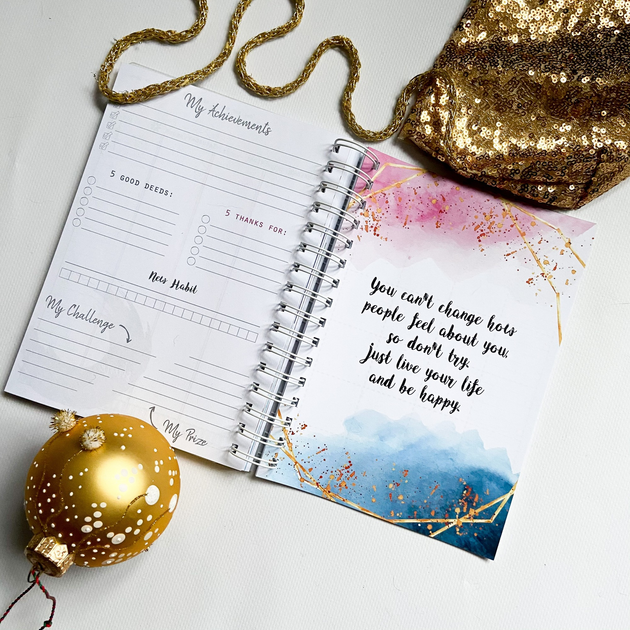 My Achievements
5 GOOD DEEDS:
5 THANKS FOR:
New Habit
My Challenge
My Prize
You can't change how
people feel about you,
so don't try.
Just live your life
and be happy.